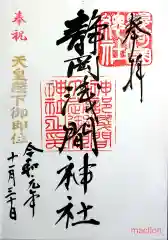 奉拝
静岡浅間神社
奉祝
天皇陛下御即位
令和元年
十一月三十日
macllon